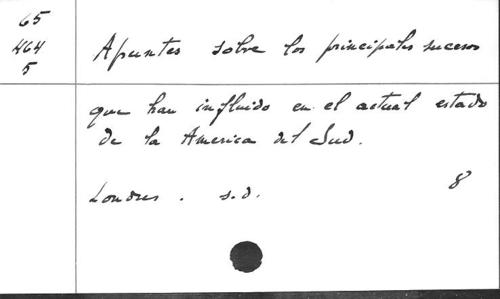 65
464
5
Apuntes sobre los principales sucesos
que han influido en el actual estado
de la America del Sud.
Londres. s.d.
8